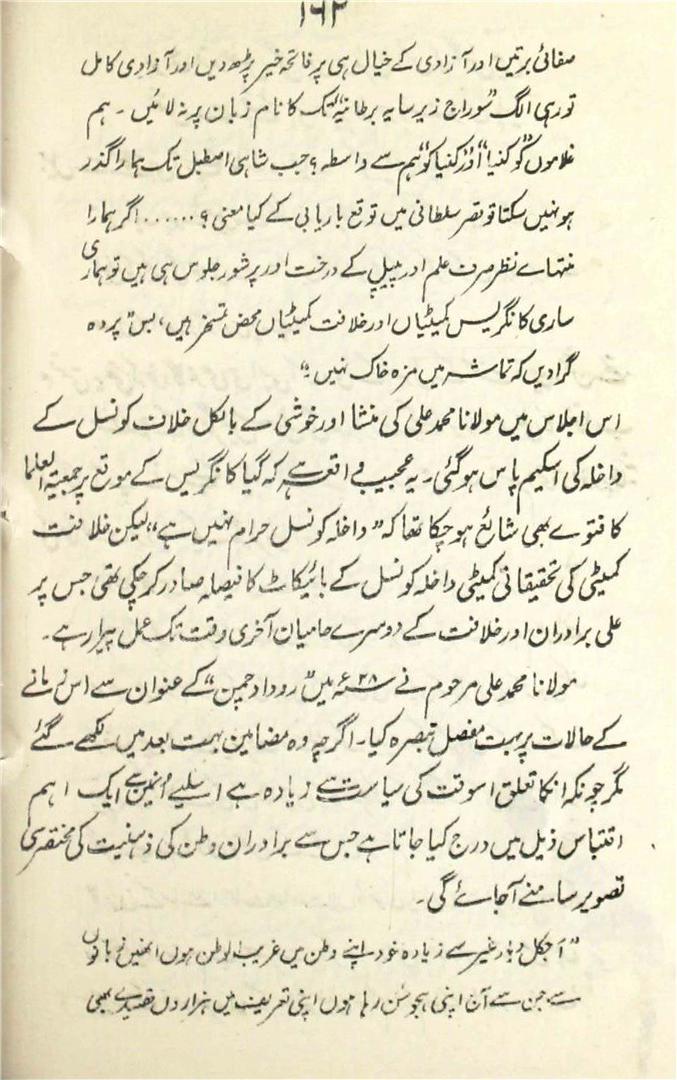 ۱۶۲
صفائی برتیں اور آزادی کے خیال ہی پر فاتحہ خیر پڑھ دیں اور آزادی کامل
تو رہی الگ "سوراج زیر سایہ برطانیہ" تک کا نام زبان پر نہ لائیں ۔ ہم
غلاموں کو "کندا" اور "کنیا کو" ہم سے واسطہ ؟ جب شاہی اصطبل تک ہمارا گذر
ہو نہیں سکتا تو قصر سلطانی میں توقع باریابی کے کیا معنی ؟ ...... اگر ہمارا
منتہاے نظر صرف علم اور پیپل کے درخت اور پر شور جلوس ہی ہیں تو ہماری
ساری کانگریس کمیٹیاں اور خلافت کمیٹیاں محض تمسخر ہیں، بس "پردہ
گرا دیں کہ تماشہ میں مزہ خاک نہیں ۔"
اس اجلاس میں مولانا محمد علی کی منشا اور خوشی کے بالکل خلاف کونسل کے
داخلہ کی اسکیم پاس ہو گئی ۔ یہ عجیب واقعہ ہے کہ گیا کانگریس کے موقع پر جمعیۃ العلما
کا فتوے بھی شائع ہو چکا تھا کہ "داخلہ کونسل حرام نہیں ہے" لیکن خلافت
کمیٹی کی تحقیقاتی کمیٹی داخلہ کونسل کے بائیکاٹ کا فیصلہ صادر کر چکی تھی جس پر
علی برادران اور خلافت کے دوسرے حامیان آخری وقت تک عمل پیرا رہے ۔
مولانا محمد علی مرحوم نے ۲۸ء میں "روداد چمن" کے عنوان سے اس زمانے
کے حالات پر بہت مفصل تبصرہ کیا ۔ اگرچہ وہ مضامین بہت بعد میں لکھے گئے
مگر چونکہ انکا تعلق اسوقت کی سیاست سے زیادہ ہے اسلیے اُنمیں سے ایک اہم
اقتباس ذیل میں درج کیا جاتا ہے جس سے برادران وطن کی ذہنیت کی مختصر سی
تصویر سامنے آجائے گی ۔
"آجکل دیار غیر سے زیادہ خود اپنے وطن میں غریب الوطن ہوں انھیں زبانوں
سے جن سے آن اپنی ہجو سُن رہا ہوں اپنی تعریف میں ہزاروں قصیدے بھی